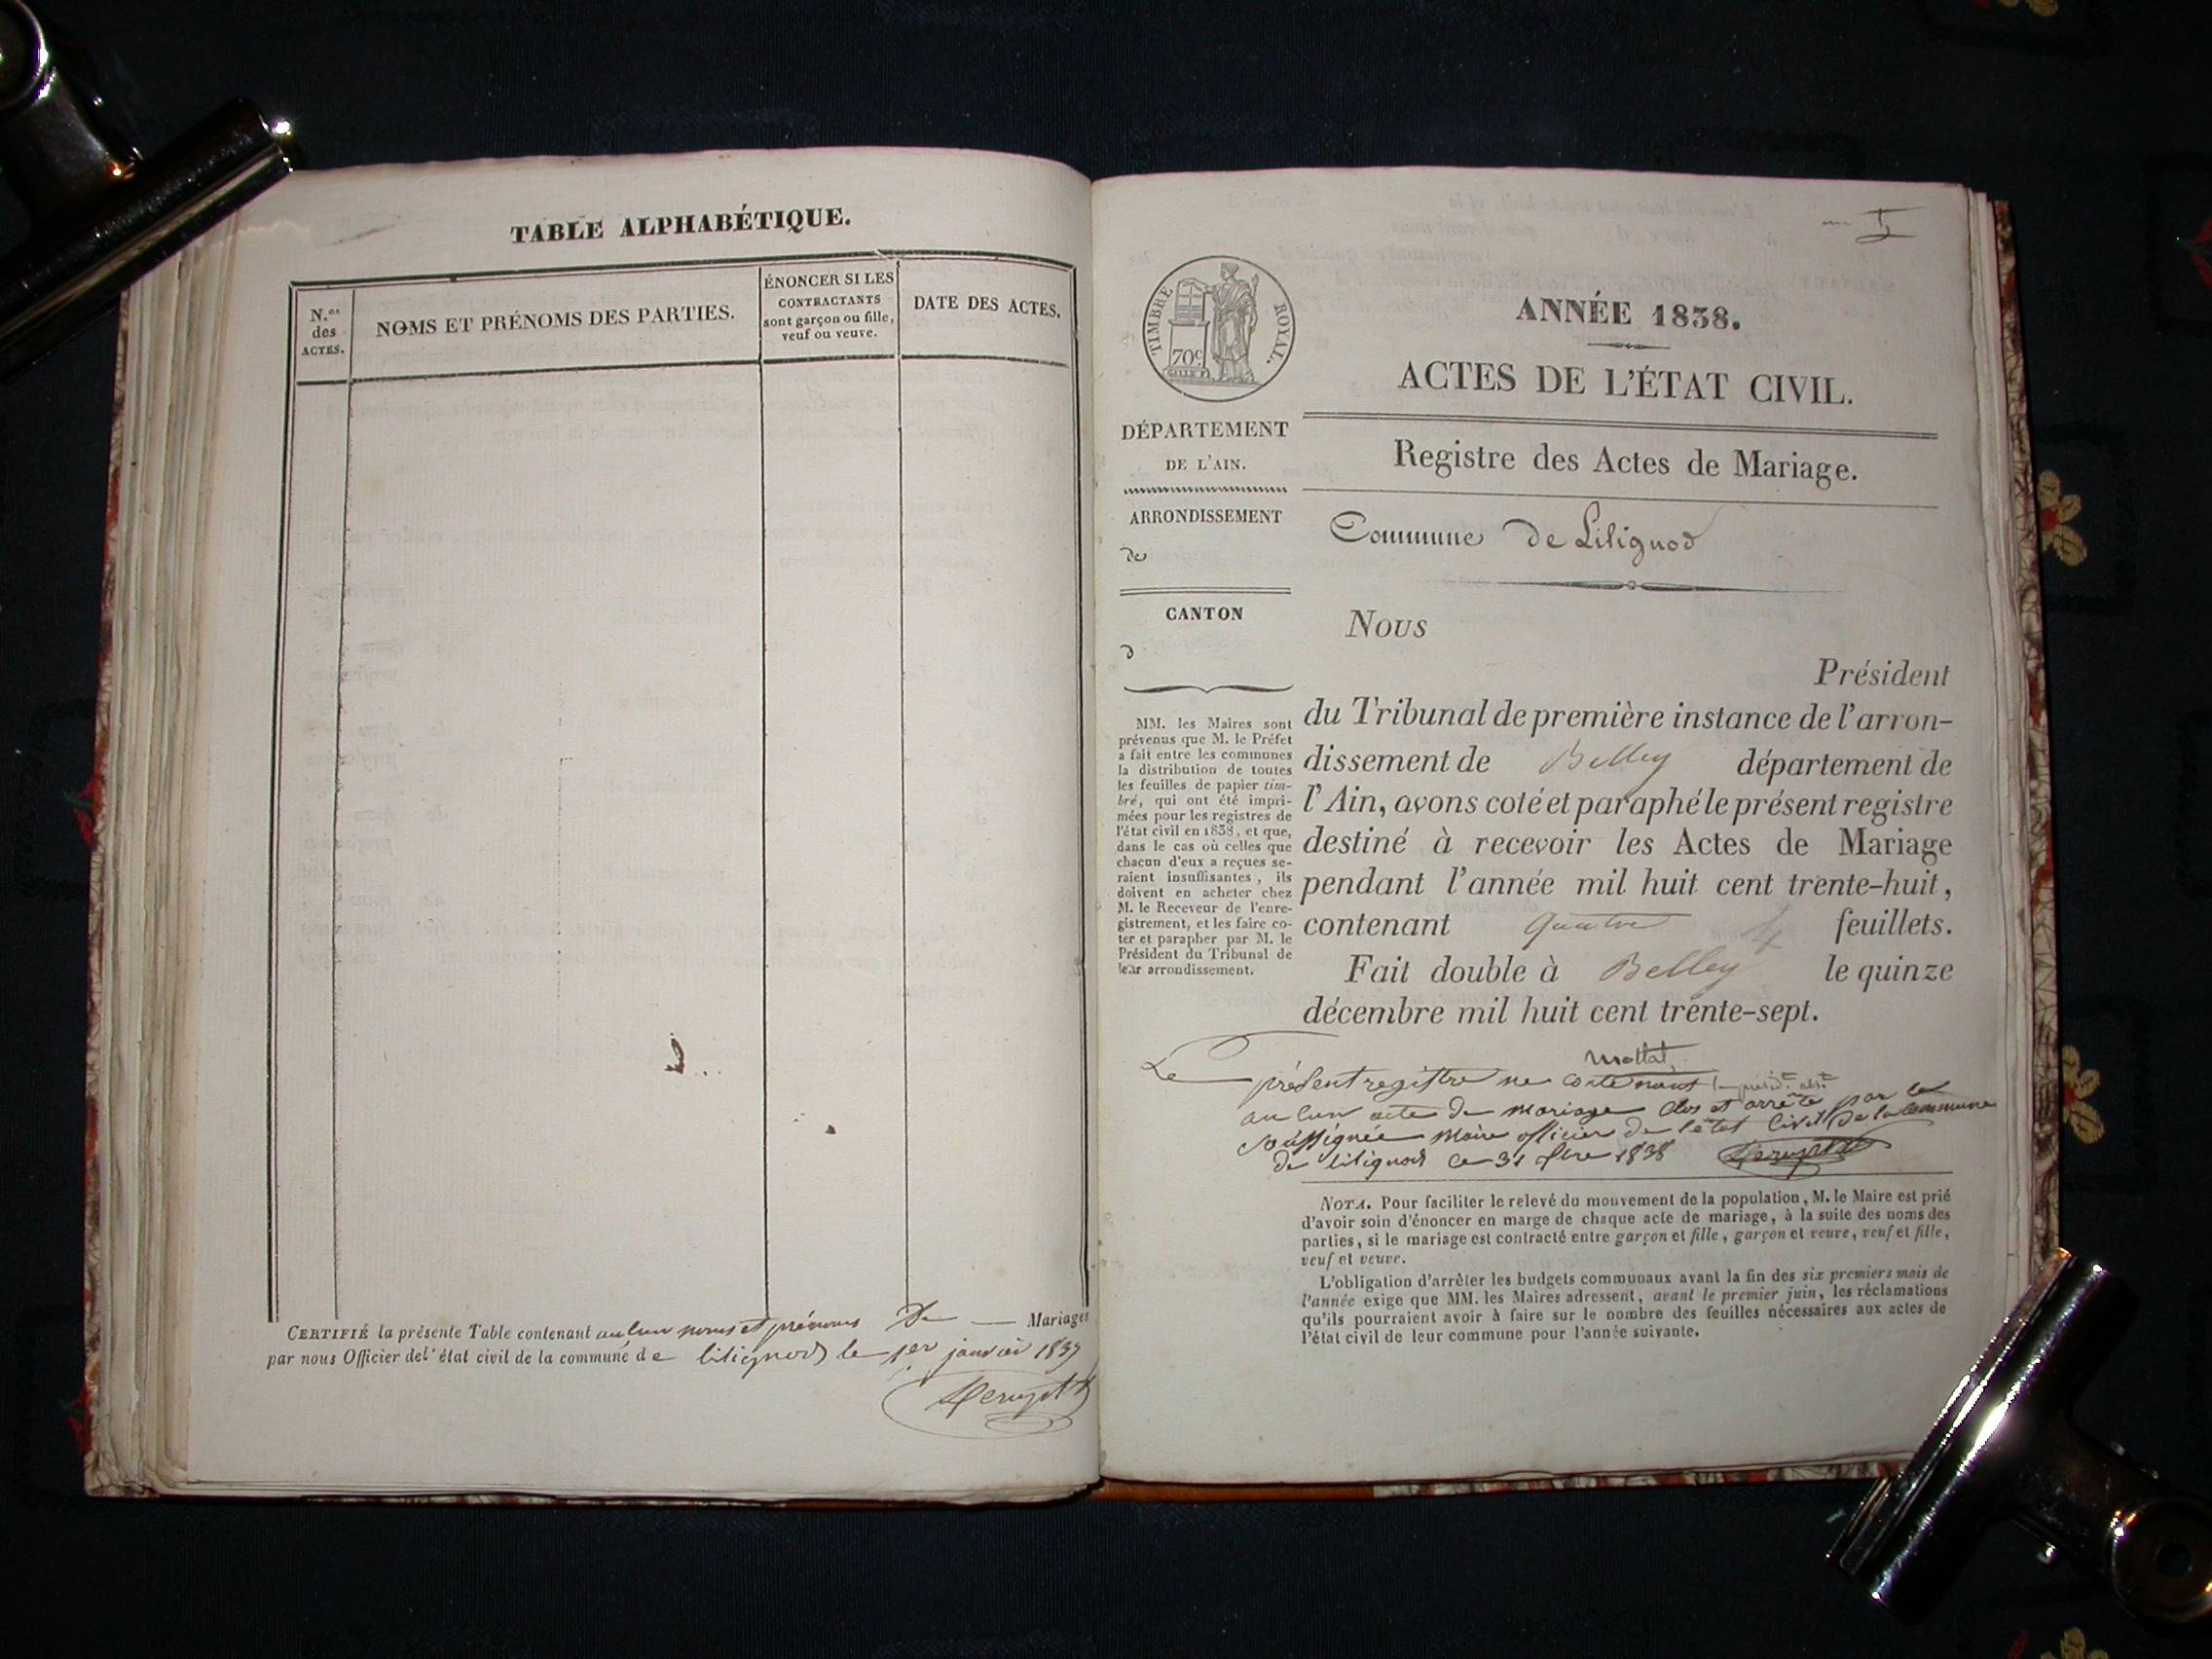 TABLE ALPHABÉTIQUE.
N.os des ACTES.
NOMS ET PRÉNOMS DES PARTIES.
ÉNONCER SI LES
CONTRACTANTS
sont garçon ou fille,
veuf ou veuve.
DATE DES ACTES.
CERTIFIÉ la présente Table contenant aucun noms et prénoms De — Mariages
par nous Officier de l'état civil de la commune de Lilignod le 1er janvier 183
TIMBRE ROYAL.
70c
ANNÉE 1838.
ACTES DE L'ÉTAT CIVIL.
DÉPARTEMENT
DE L'AIN.
Registre des Actes de Mariage.
ARRONDISSEMENT
de
Commune de Lilignod
CANTON
d
Nous
Président
du Tribunal de première instance de l'arron-
dissement de Belley département de
l'Ain, avons coté et paraphé le présent registre
destiné à recevoir les Actes de Mariage
pendant l'année mil huit cent trente-huit,
contenant quatre 4 feuillets.
Fait double à Belley le quinze
décembre mil huit cent trente-sept.
MM. les Maires sont
prévenus que M. le Préfet
a fait entre les communes
la distribution de toutes
les feuilles de papier tim-
bré, qui ont été impri-
mées pour les registres de
l'état civil en 1838, et que,
dans le cas où celles que
chacun d'eux a reçues se-
raient insuffisantes, ils
doivent en acheter chez
M. le Receveur de l'enre-
gistrement, et les faire co-
ter et parapher par M. le
Président du Tribunal de
leur arrondissement.
Mottat
Le présent registre ne contenant
aucun acte de mariage clos et arrêté par le
soussigné Maire officier de l'état Civil De la Commune
de lilignod ce 31 Xbre 1838
NOTA. Pour faciliter le relevé du mouvement de la population, M. le Maire est prié
d'avoir soin d'énoncer en marge de chaque acte de mariage, à la suite des noms des
parties, si le mariage est contracté entre garçon et fille, garçon et veuve, veuf et fille,
veuf et veuve.
L'obligation d'arrêter les budgets communaux avant la fin des six premiers mois de
l'année exige que MM. les Maires adressent, avant le premier juin, les réclamations
qu'ils pourraient avoir à faire sur le nombre des feuilles nécessaires aux actes de
l'état civil de leur commune pour l'année suivante.